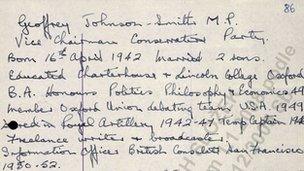 86
Geoffrey Johnson-Smith M.P.
Vice Chairman Conservative Party.
Born 16th April 1942 Married 2 sons.
Educated Charterhouse & Lincoln College Oxford
B.A. Honours Politics Philosophy & Economics 49
member Oxford Union debating team U.S.A. 1949
Royal Artillery 1942-47 Temp Captain 194
Freelance writer & broadcast
Information Officer British Consulate San Francisco
1950-52.